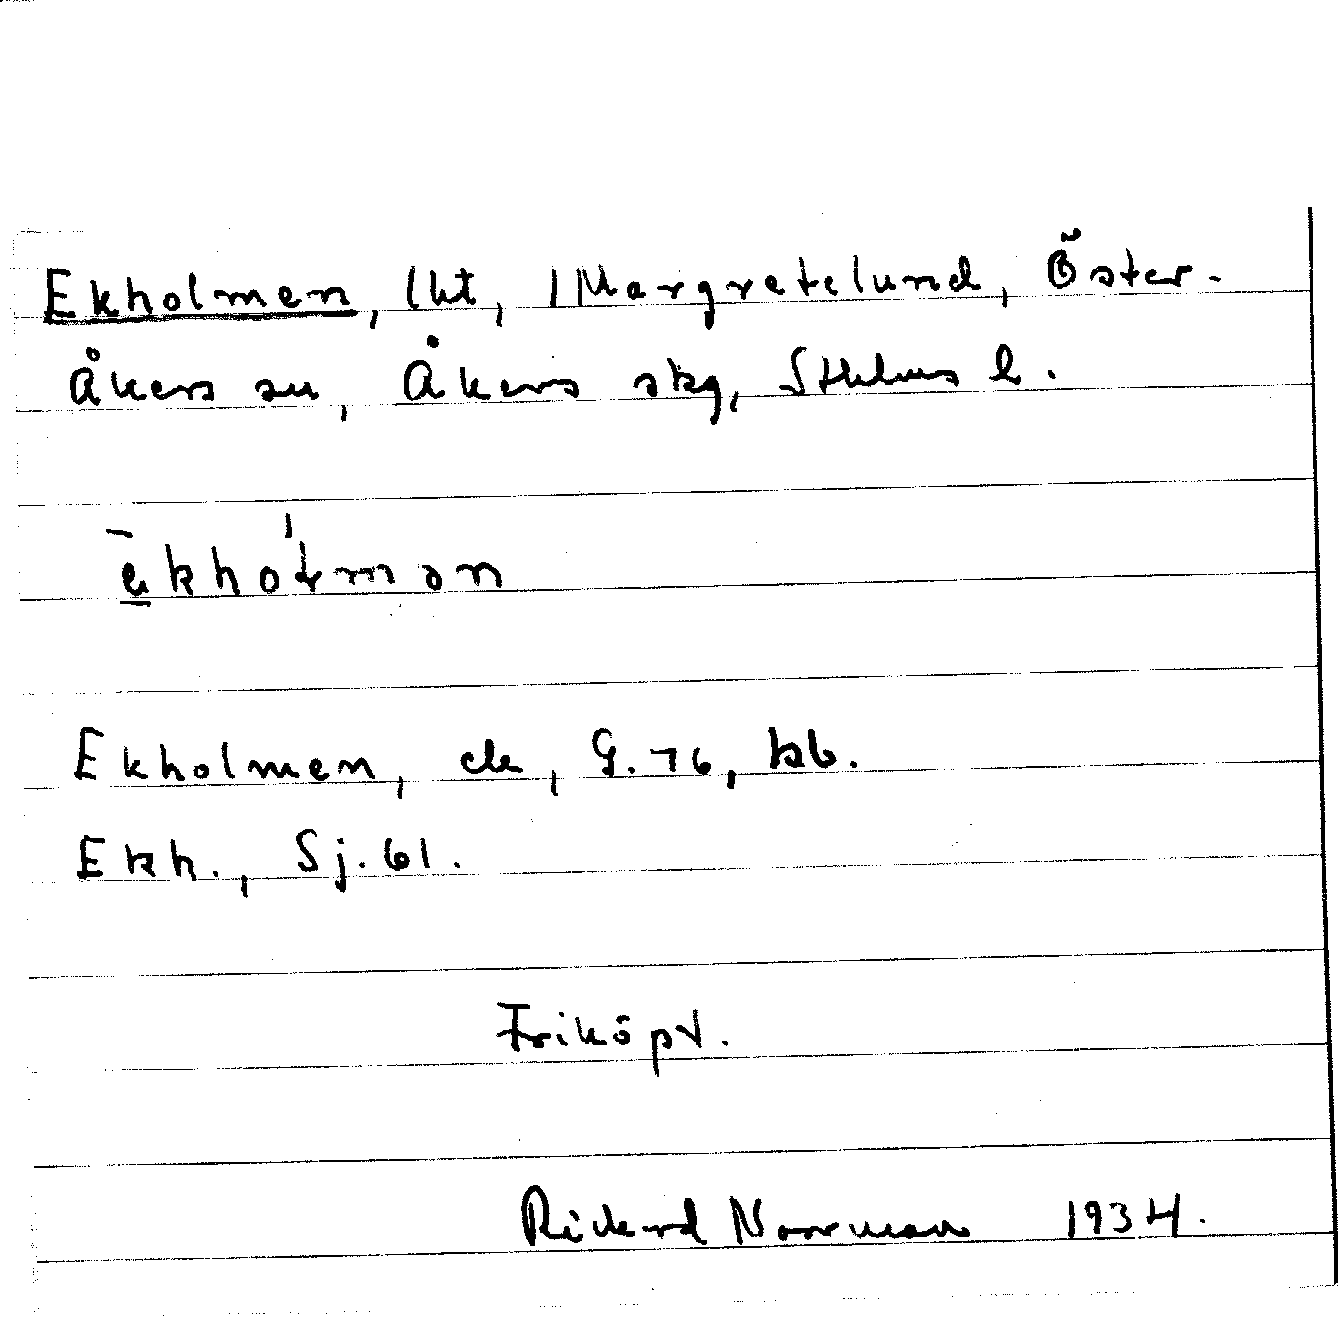 Ekholmen, lht, 1 Margretelund, Öster-
Åkers sn, Åkers skg, Sthlms l.
ekholmən
Ekholmen, de, G. 76, kb.
Ekh., Sj. 61.
Friköpt.
Rickard Norrman 1934.